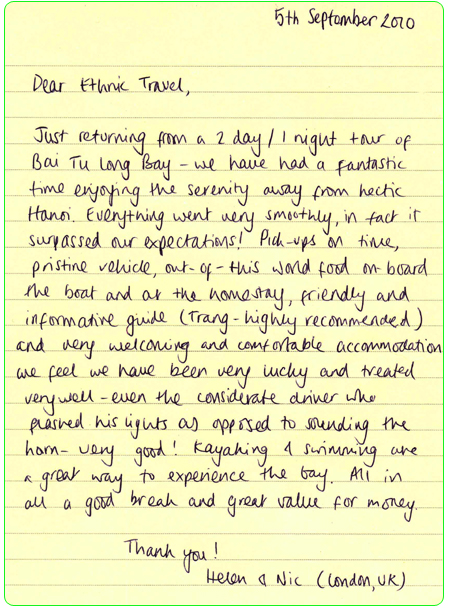 5th September 2010
Dear Ethnic Travel,
Just returning from a 2 day / 1 night tour of
Bai Tu Long Bay - we have had a fantastic
time enjoying the serenity away from hectic
Hanoi. Everything went very smoothly, in fact it
surpassed our expectations! Pick-ups on time,
pristine vehicle, out-of-this world food on board
the boat and at the homestay, friendly and
informative guide (Trang - highly recommended)
and very welcoming and comfortable accommodation
we feel we have been very lucky and treated
very well - even the considerate driver who
flashed his lights as opposed to sounding the
horn - very good! Kayaking & swimming are
a great way to experience the bay. All in
all a good break and great value for money.
Thank you!
Helen & Nic (London, UK)